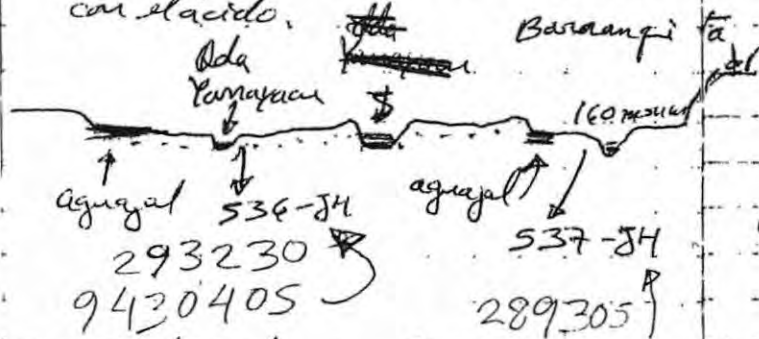 con el acido.
Qda
Yanayacu
160 msnm
aguajal 536-JH
aguajal
537-JH
293230
9430405
289305